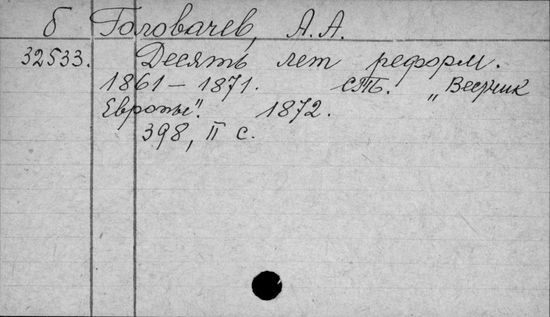 б Головачев, А.А.
32533. Десять лет реформ.
1861 – 1871. СПБ. „Вестник
Европы". 1872.
398, II с.